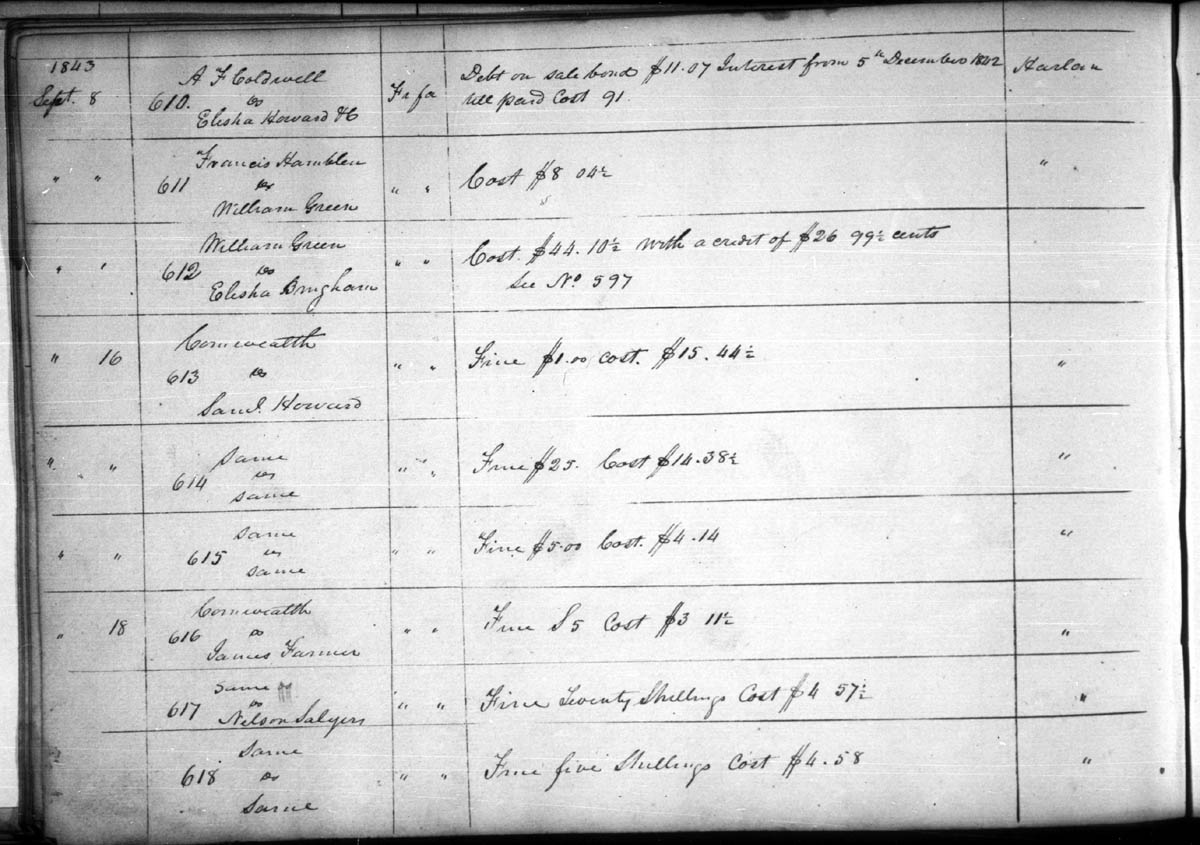 1843
Sept. 8
A F Coldwell
610. vs Fi fa Debt on sale bond $11.07 Interest from 5th December 1842 Harlan
Elisha Howard &C till paid Cost 91.
Francis Hamblen
" " 611 vs " " Cost $8 04½ "
William Green
William Green
" " 612 vs " " Cost. $44.10½ with a credit of $26 99½ cents
Elisha Bingham See No 597
Comwealth
" 16 613 vs " " Fine $1.00 cost. $15.44½ "
Saml. Howard
Same
" " 614 vs " " Fine $25. Cost $14.38½ "
Same
Same
" " 615 vs " " Fine $5.00 Cost. $4.14 "
Same
Comwealth
" 18 616 vs " " Fine $5 Cost $3 11½ "
James Farmer
Same
617 vs " " Fine Twenty Shillings Cost $4 57½ "
Nelson Salyers
Same
618 vs " " Fine five Shillings Cost $4.58 "
Same